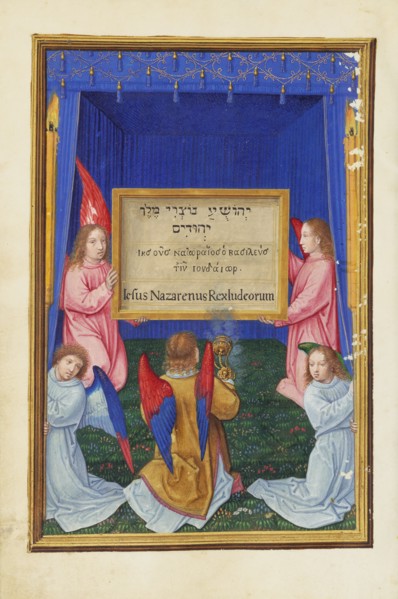 יְהוֹשֻׁעַ נוֹצְרִי מֶלֶך
יְהוּדִים
ιησοῦς ναζωραῖος ὁ βασιλεὺς
τῶν ἰουδαίων.
Iesus Nazarenus Rex Iudeorum